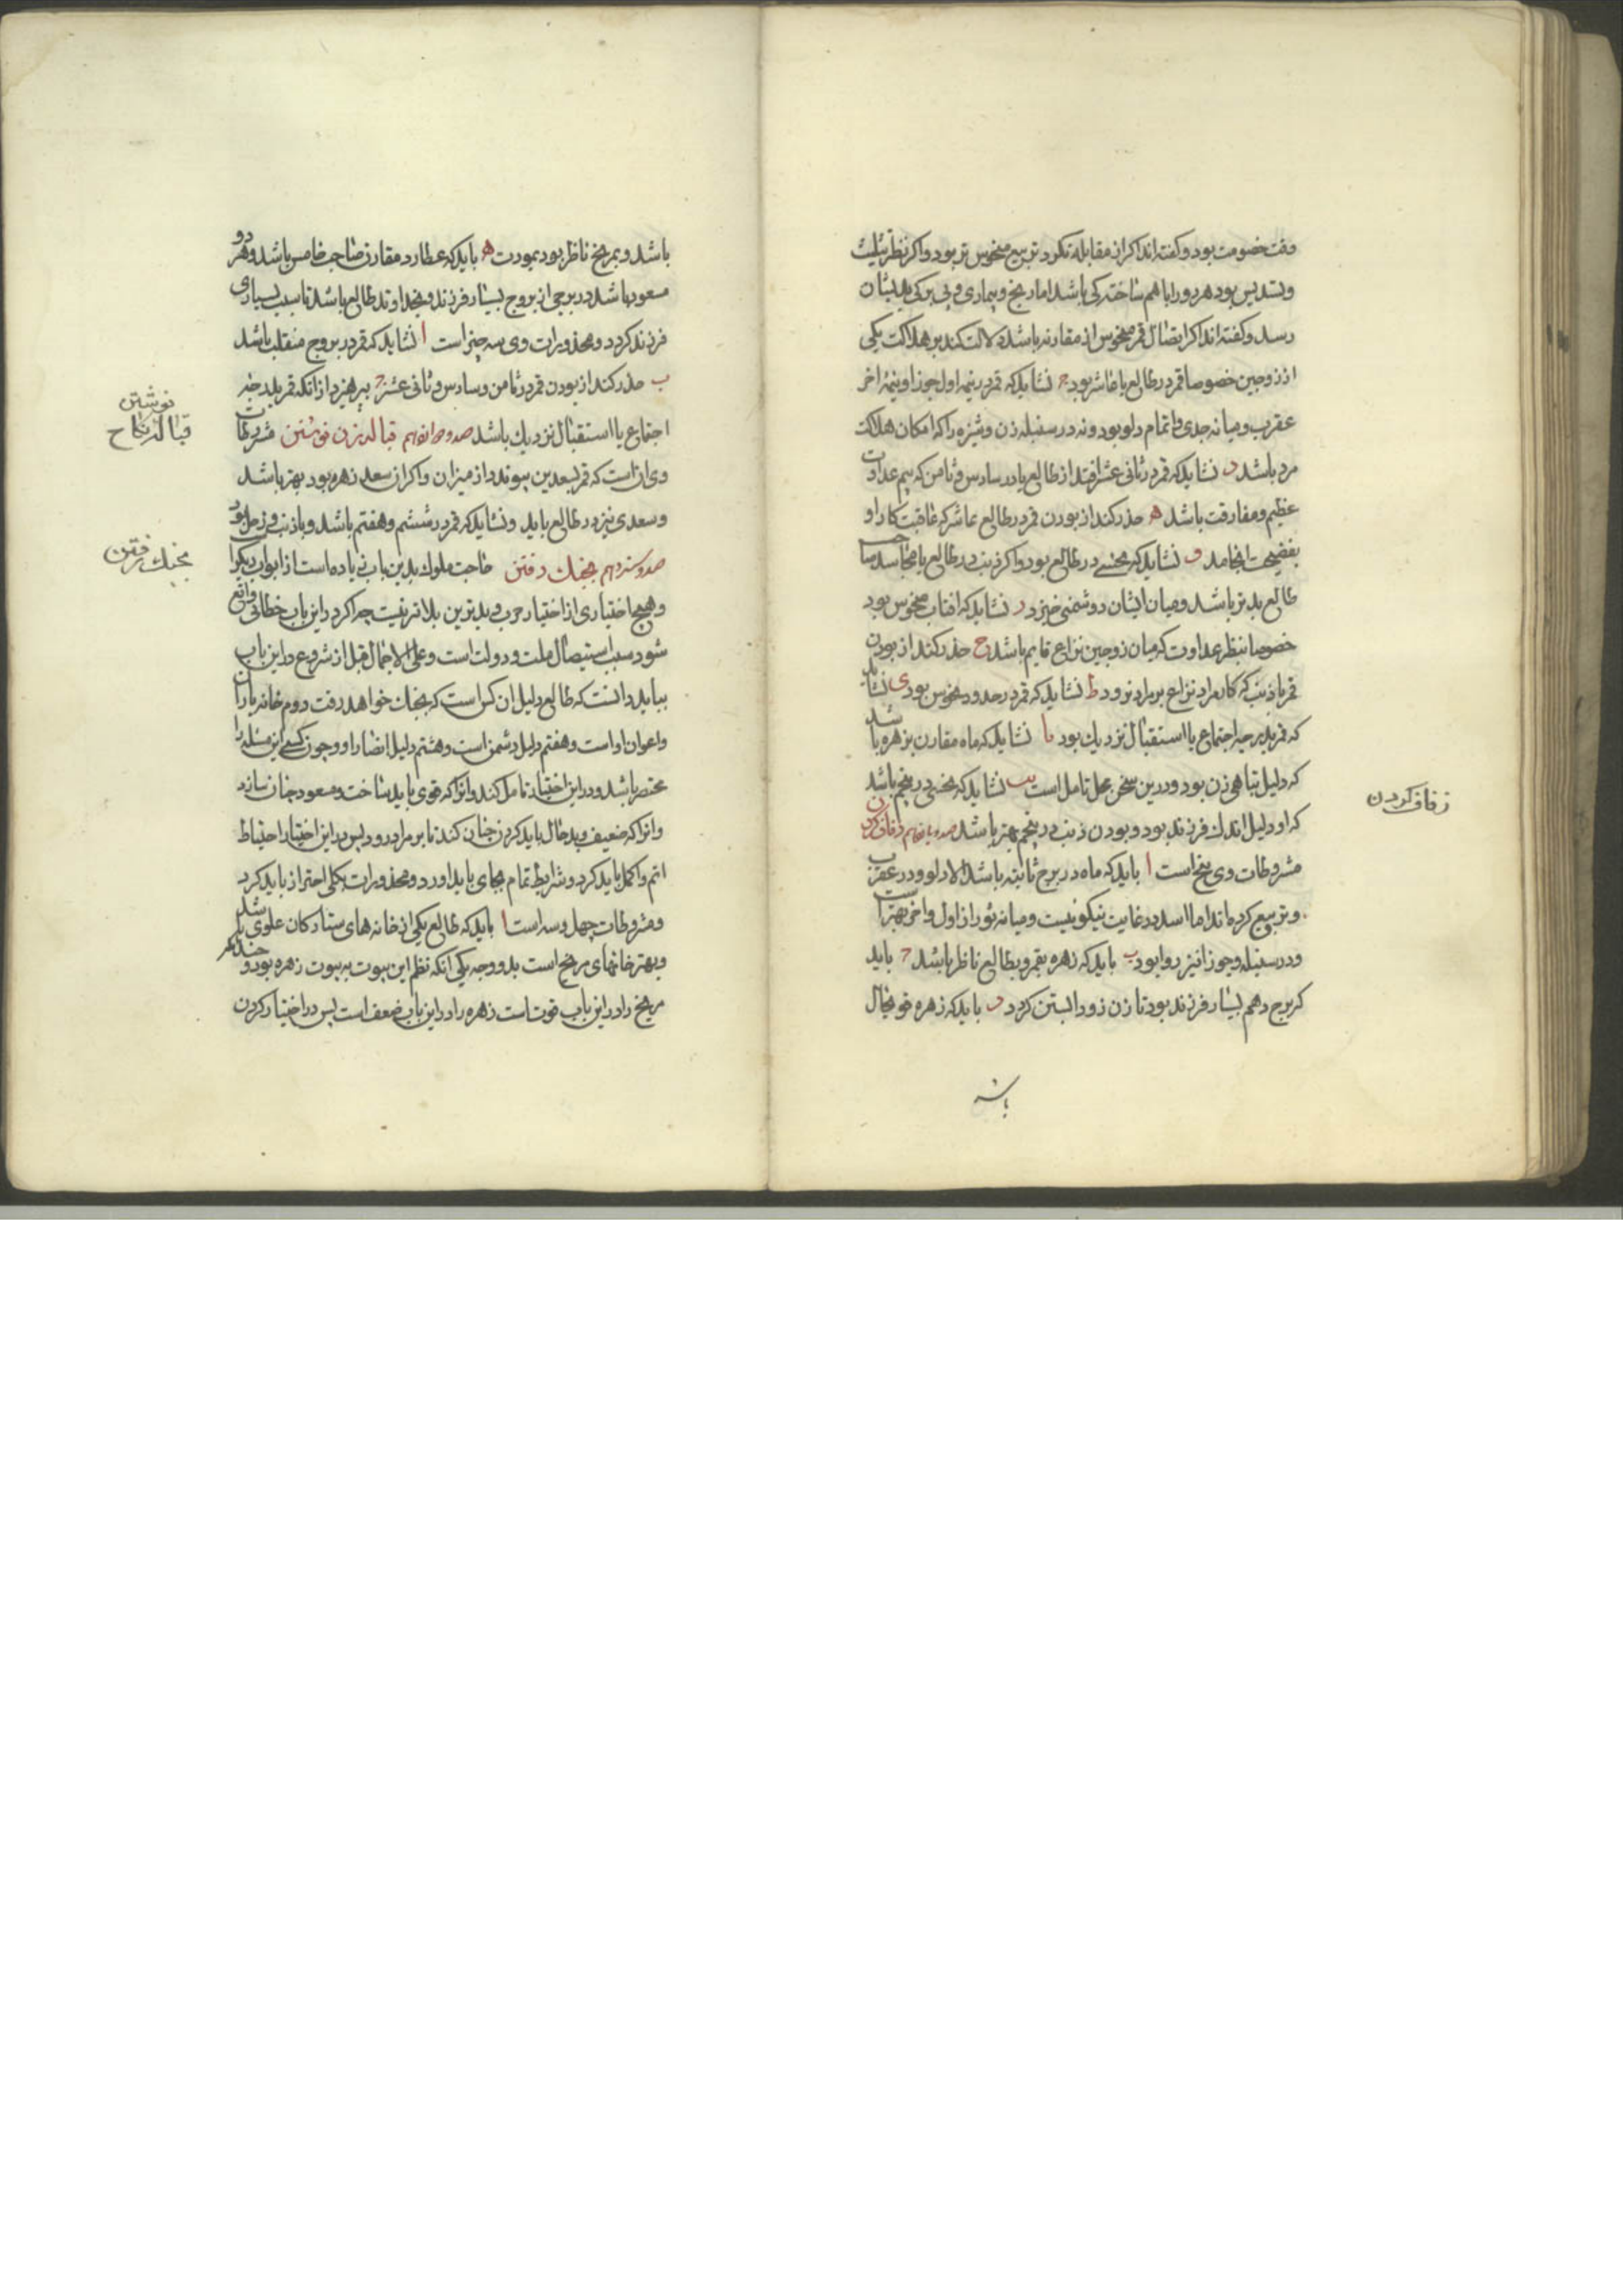 وقت خصومت بود و کفته‌اند اکر از مقابله نکرد تربیع منحوس تر بود و اکر نظر تثلیث
و تسدیس بود هر دو را باهم ساختکی باشد اما رنج و بیماری و بی برکی بدیشان
رسد و کفته‌اند اکر اتصال قمر منحوس از مقارنه باشد دلالت کند بر هلاکت یکی
از زوجین خصوصا قمر در طالع یا عاشر بود ج نشاید که قمر در نیمه اول جوزا و نیمه اخر
عقرب و میانه جدی و تمام دلو بود و نه در سنبله زن دوشیزه را که امکان هلاکت
مرد باشد د نشاید که قمر در ثانی عشر افتد از طالع یا در سادس و ثامن که بیم عداوت
عظیم و مفارقت باشد ه حذر کند از بودن قمر در طالع عاشر که عاقبت کار او
بفضیحت انجامد و نشاید که نحسی در طالع بود و اکر ذنب در طالع یا مجاسد صاحب
طالع بدتر باشد و میان ایشان دشمنی خیزد ز نشاید که افتاب منحوس بود
خصوصا بنظر عداوت که میان زوجین نزاع قایم باشد ح حذر کند از بودن
قمر با ذنب که کار مراد نزاع بر مراد نرود ط نشاید که قمر در حدود نحوس بود ی نشاید
که قمر بدرجه اجتماع یا استقبال نزدیك بود یا نشاید که ماه مقارن بزهره باشد
که دلیل تباهی زن بود و درین سخن محل تامل است یب نشاید که نحسی در پنجم باشد
که او دلیل اندك فرزند بود و بودن ذنب در پنجم بهتر باشد صد و یازدهم زفاف کردن
مشروطات وی پنج است ا باید که ماه در برج ثابته باشد الا دلو و در عقرب
و تربیع کرده‌اند اما اسد در غایت نیکو نیست و میانه ثور از اول و اخر بهتر است
و در سنبله و جوزا نیز روا بود ب باید که زهره بقمر و بطالع ناظر باشد ج باید
که برج دهم بسیار فرزند بود تا زن زود ابستن کردد د باید که زهره قوی حال
باشد
زفاف کردن
باشد و بمریخ ناظر بود بمودت ه باید که عطارد مقارن صاحب خامس باشد و هر دو
مسعود باشد در برجی از بروج بسیار فرزند و بخداوند طالع باشد تا سبب بسیاری
فرزند کردد و محذورات وی سه چیز است ا نشاید که قمر در بروج منقلب باشد
ب حذر کند از بودن قمر در ثامن و سادس و ثانی عشر ج بپرهیزد از انکه قمر بدرجه
اجتماع یا استقبال نزدیك باشد صد و دوازدهم قباله زن نوشتن مشروطات
وی ان است که قمر بسعدین پیوندد از میزان و اکر ان سعد زهره بود بهتر باشد
و سعدی نیز در طالع باید و نشاید که قمر در ششم و هفتم باشد و با ذنب و زحل بود
صد و سیزدهم بجنك رفتن حاجت ملوك بدین باب زیاده است از ابواب دیکر
و هیچ اختیاری از اختیار حرب و بدترین بلاتر نیست چه اکر در این باب خطائی واقع
شود سبب استیصال ملت و دولت است و علی الاجمال قبل از شروع در این باب
بباید دانست که طالع دلیل ان کس است که بجنك خواهد رفت و دوم خانه یاران
و اعوان او است و هفتم دلیل دشمن است و هشتم دلیل انصار او و چون کسی این مسئله را
مختصر باشد و در این اختیار تامل کند و انرا که قوی باید ساخت و مسعود چنان سازد
و انرا که ضعیف و بد حال باید کردن چنان کند تا بر مراد رود پس در این اختیار احتیاط
اتم و اکمل باید کرد و شرایط تمام بجای باید اورد و محذورات بکلی احتراز باید کرد
و مشروطات چهل و سه است ا باید که طالع یکی از خانه های ستارکان علوی باشد
و بهتر خانهای مریخ است بدو وجه یکی انکه نظم این بیوت به بیوت زهره بود و چندانکه
مریخ را در این باب قوت است زهره را در این باب ضعف است پس در اختیار کردن
نوشتن
قباله نکاح
بجنك رفتن